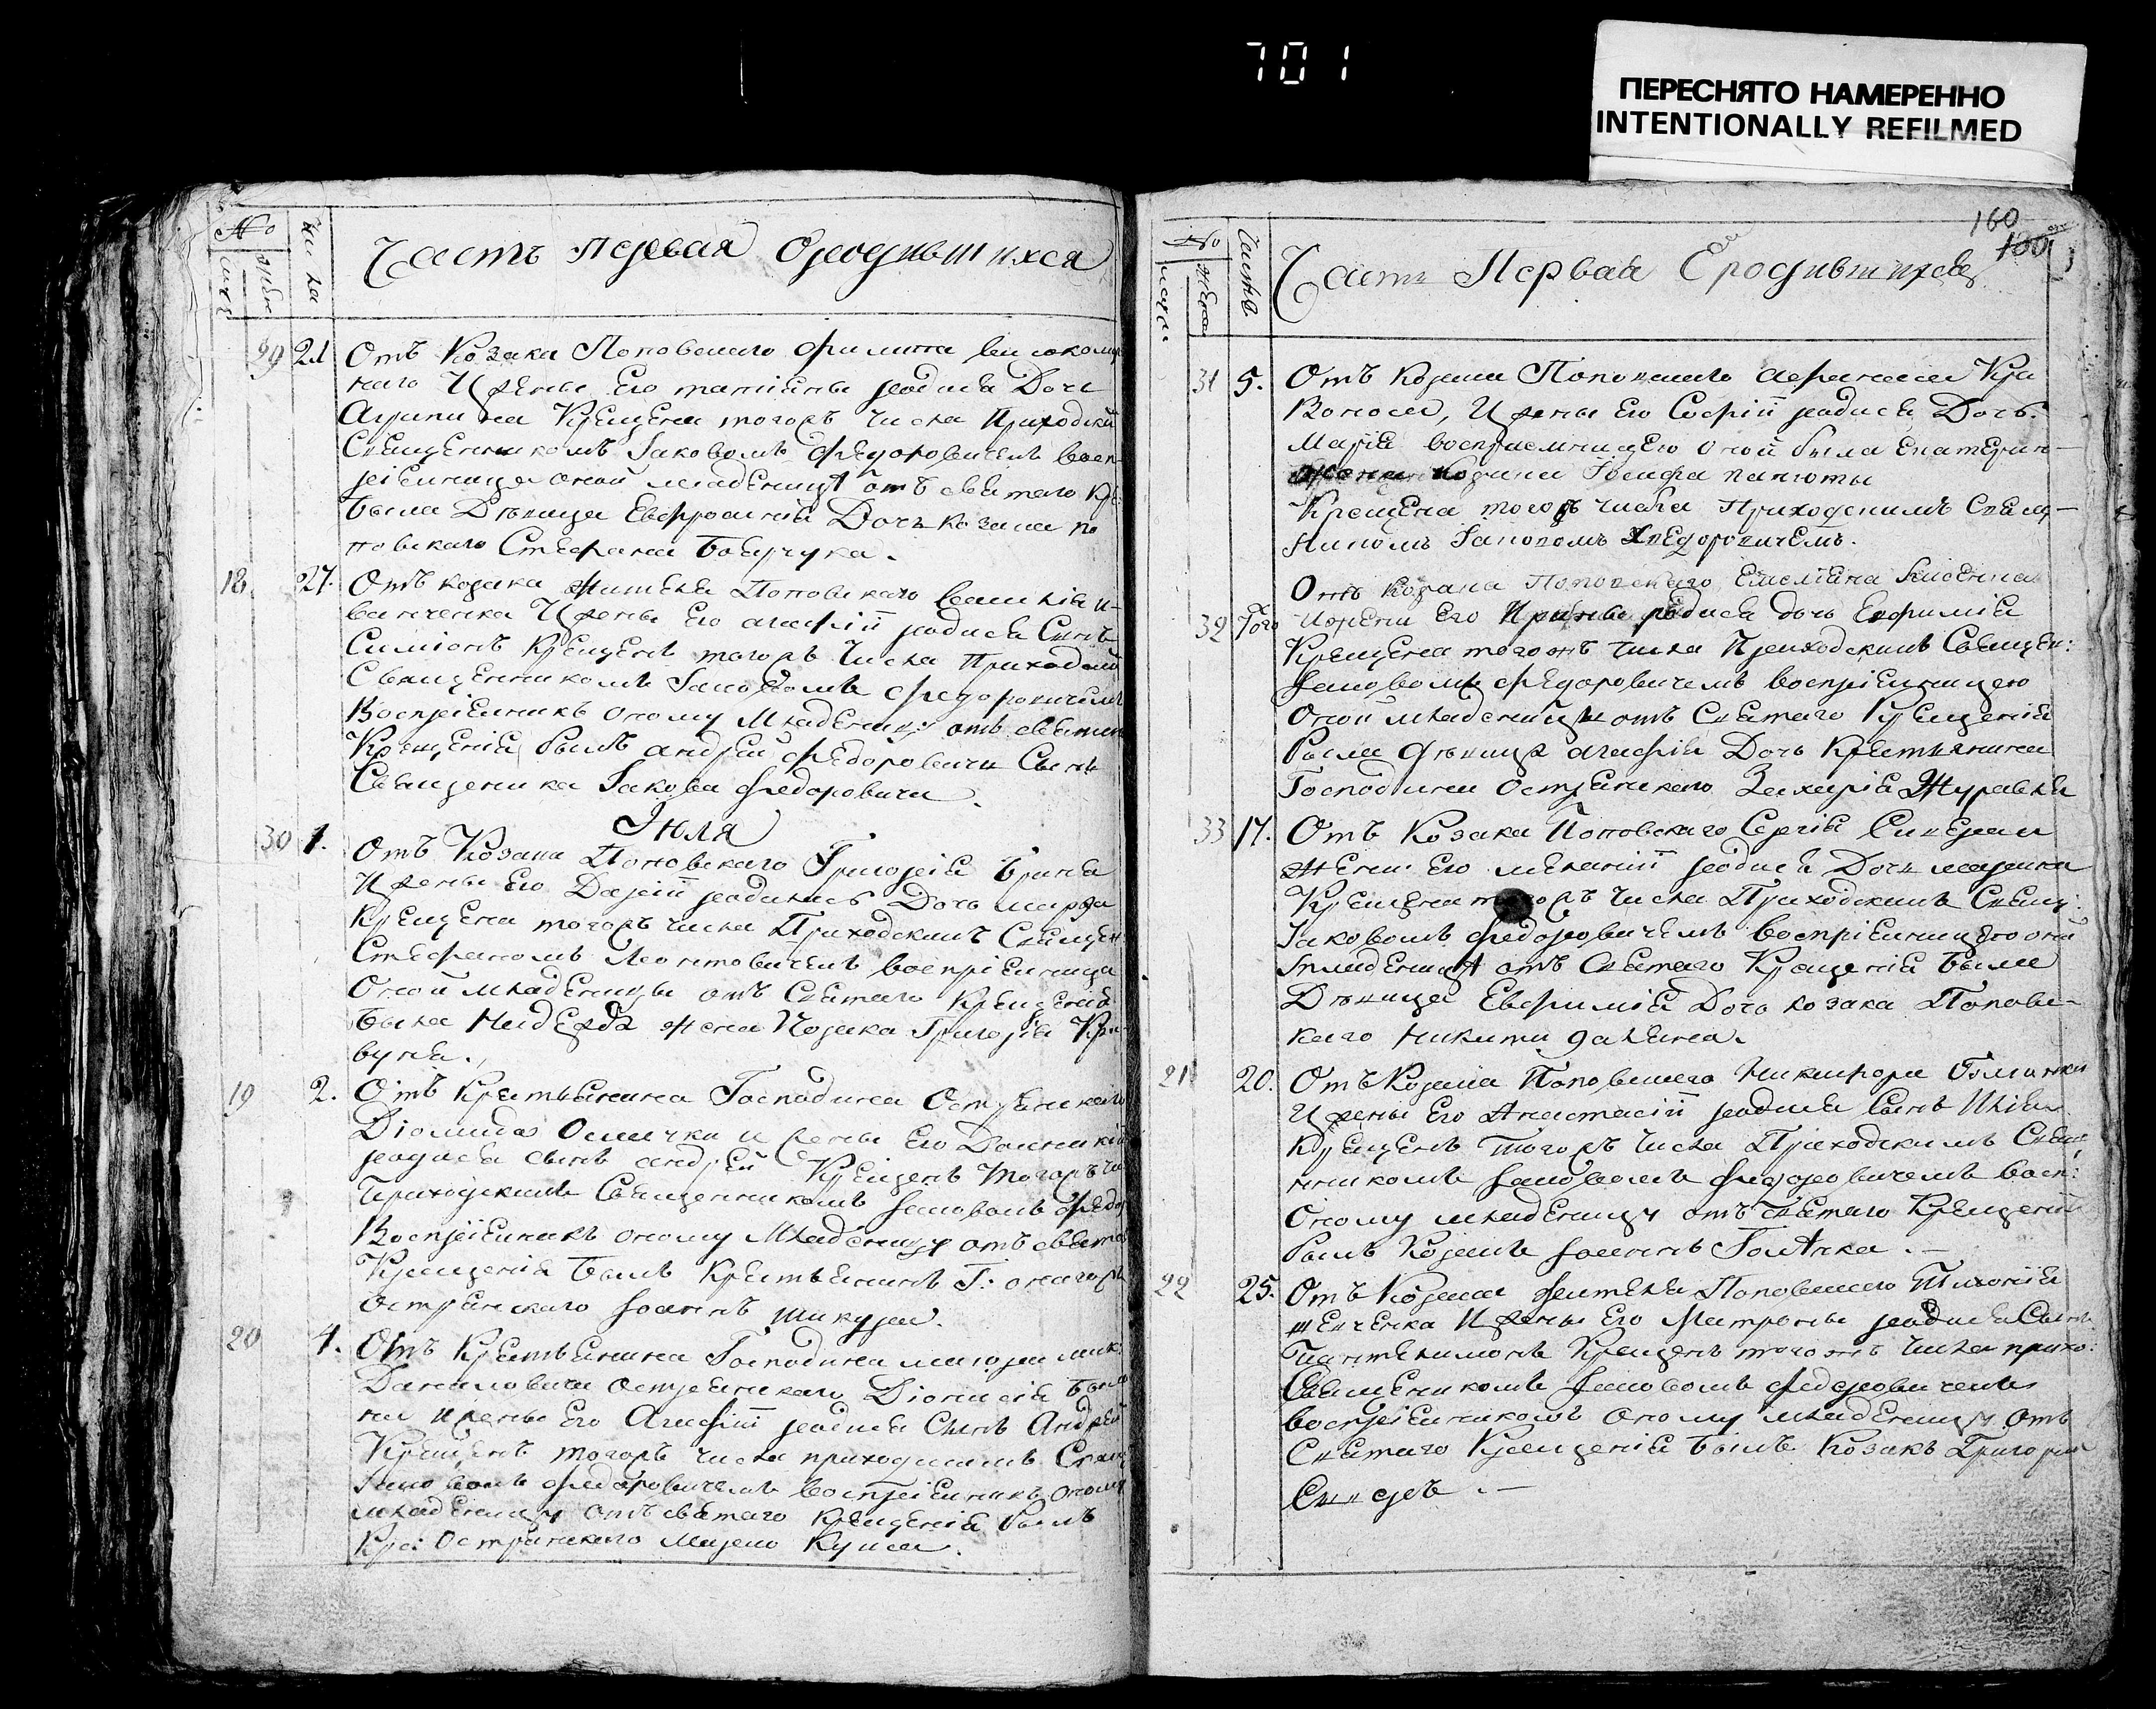 701
ПЕРЕСНЯТО НАМЕРЕННО
INTENTIONALLY REFILMED
№
числа
Часть первая Ородившихся
29 21 Отъ Козака Поповского Филипа
ного И жены его татіаны родися Дочь
Агрипина Крещена тогожъ числа Приходски
Священникомъ Іаковомъ Федоровичемъ восп
ріемница оной младеницы отъ святаго Кр:
была Дѣвица Евфросинія Дочь козака по
повскаго Стефана
18 27. Отъ козака жителя Поповскаго Василія и-
ванченка И жены его агафіи родися Сынъ
Симіонъ Крещенъ тогожъ числа приходски
Священникомъ Іаковомъ Федоровичемъ
Воспріемникъ оному младенцу отъ святаго
Крещенія былъ андрей Федоровичъ Сынъ
Священика Іакова Федоровича.
Іюля
30 1. Отъ Козака Поповскаго Григорія
И жены его Даріи родилась Дочь марфа
Крещена тогожъ числа Приходскимъ Священ:
Стефаномъ Леонтовичемъ воспріемница
оной младеницы отъ Святаго Крещенія
была Надежда жена Козака Григорія Кри-
вуна.
19 2. Отъ Крестьянина Господина Остранскаго
Діомида И жены его
родися сынъ андрей Крещенъ тогожъ чи
Приходскимъ Священникомъ Іаковомъ Федор
Воспріемникъ оному младенцу отъ свята
Крещенія былъ Крестьянинъ Г: оногожъ
остранскаго Іоаннъ шикура.
20 4. Отъ Крестьянина Господина маіора
Даниловича остранскаго Діонисія
ки И жены его Агафіи родися Сынъ Андрей
Крещенъ тогожъ числа приходскимъ Свящ
Іаковомъ Федоровичемъ воспріемникъ оному
младенцу отъ святаго крещенія былъ
Кре: Остранскаго
160
№
жена
Часть Первая Ородившихся
31 5. Отъ Козака Поповскаго афанасія Кри
воноса, И жены его Софіи родися Дочь.
Марія воспріемницею оной была екатерин-
жена козака Іосифа папюты
Крещена тогожъ числа Приходскимъ Свящ-
никомъ Іаковомъ Федоровичемъ.
Отъ Козака Поповскаго Емеліана
32 Того И жени его Ирины родися дочь Евфимія
Крещена тогожъ числа Приходскимъ Священ:
Іаковомъ Федоровичемъ воспріемницею
оной младеницы отъ Святаго Крещенія
была дѣвица агафія Дочь Крестьянина
Господина Остранскаго Захарія Журавля
33 17. Отъ Козака Поповскаго Сергія
жены его меланіи родися Дочь марина
Крещена тогожъ числа Приходскимъ Свящ:
Іаковомъ Федоровичемъ воспріемницею оной
младеницы отъ Святаго Крещенія была
Дѣвица Евфимія Дочь козака Попов-
скаго Никити
21 20. Отъ Козака Поповскаго Никифора
И жены его Анастасіи родися Сынъ Илія
Крещенъ тогожъ числа Приходскимъ Свящ
никомъ Іаковомъ Федоровичемъ восп:
оному младенцу отъ Святаго Крещенія
былъ Козакъ Іоаннъ
22 25. Отъ Козака жителя Поповскаго Тихонія
шевченка И жены его Матроны родися Сынъ
Пантелимонъ Крещенъ тогожъ числа прихо:
Священикомъ Іаковомъ Федоровичемъ
воспріемникомъ оному младенцу отъ
Святаго Крещенія былъ Козакъ Григорій